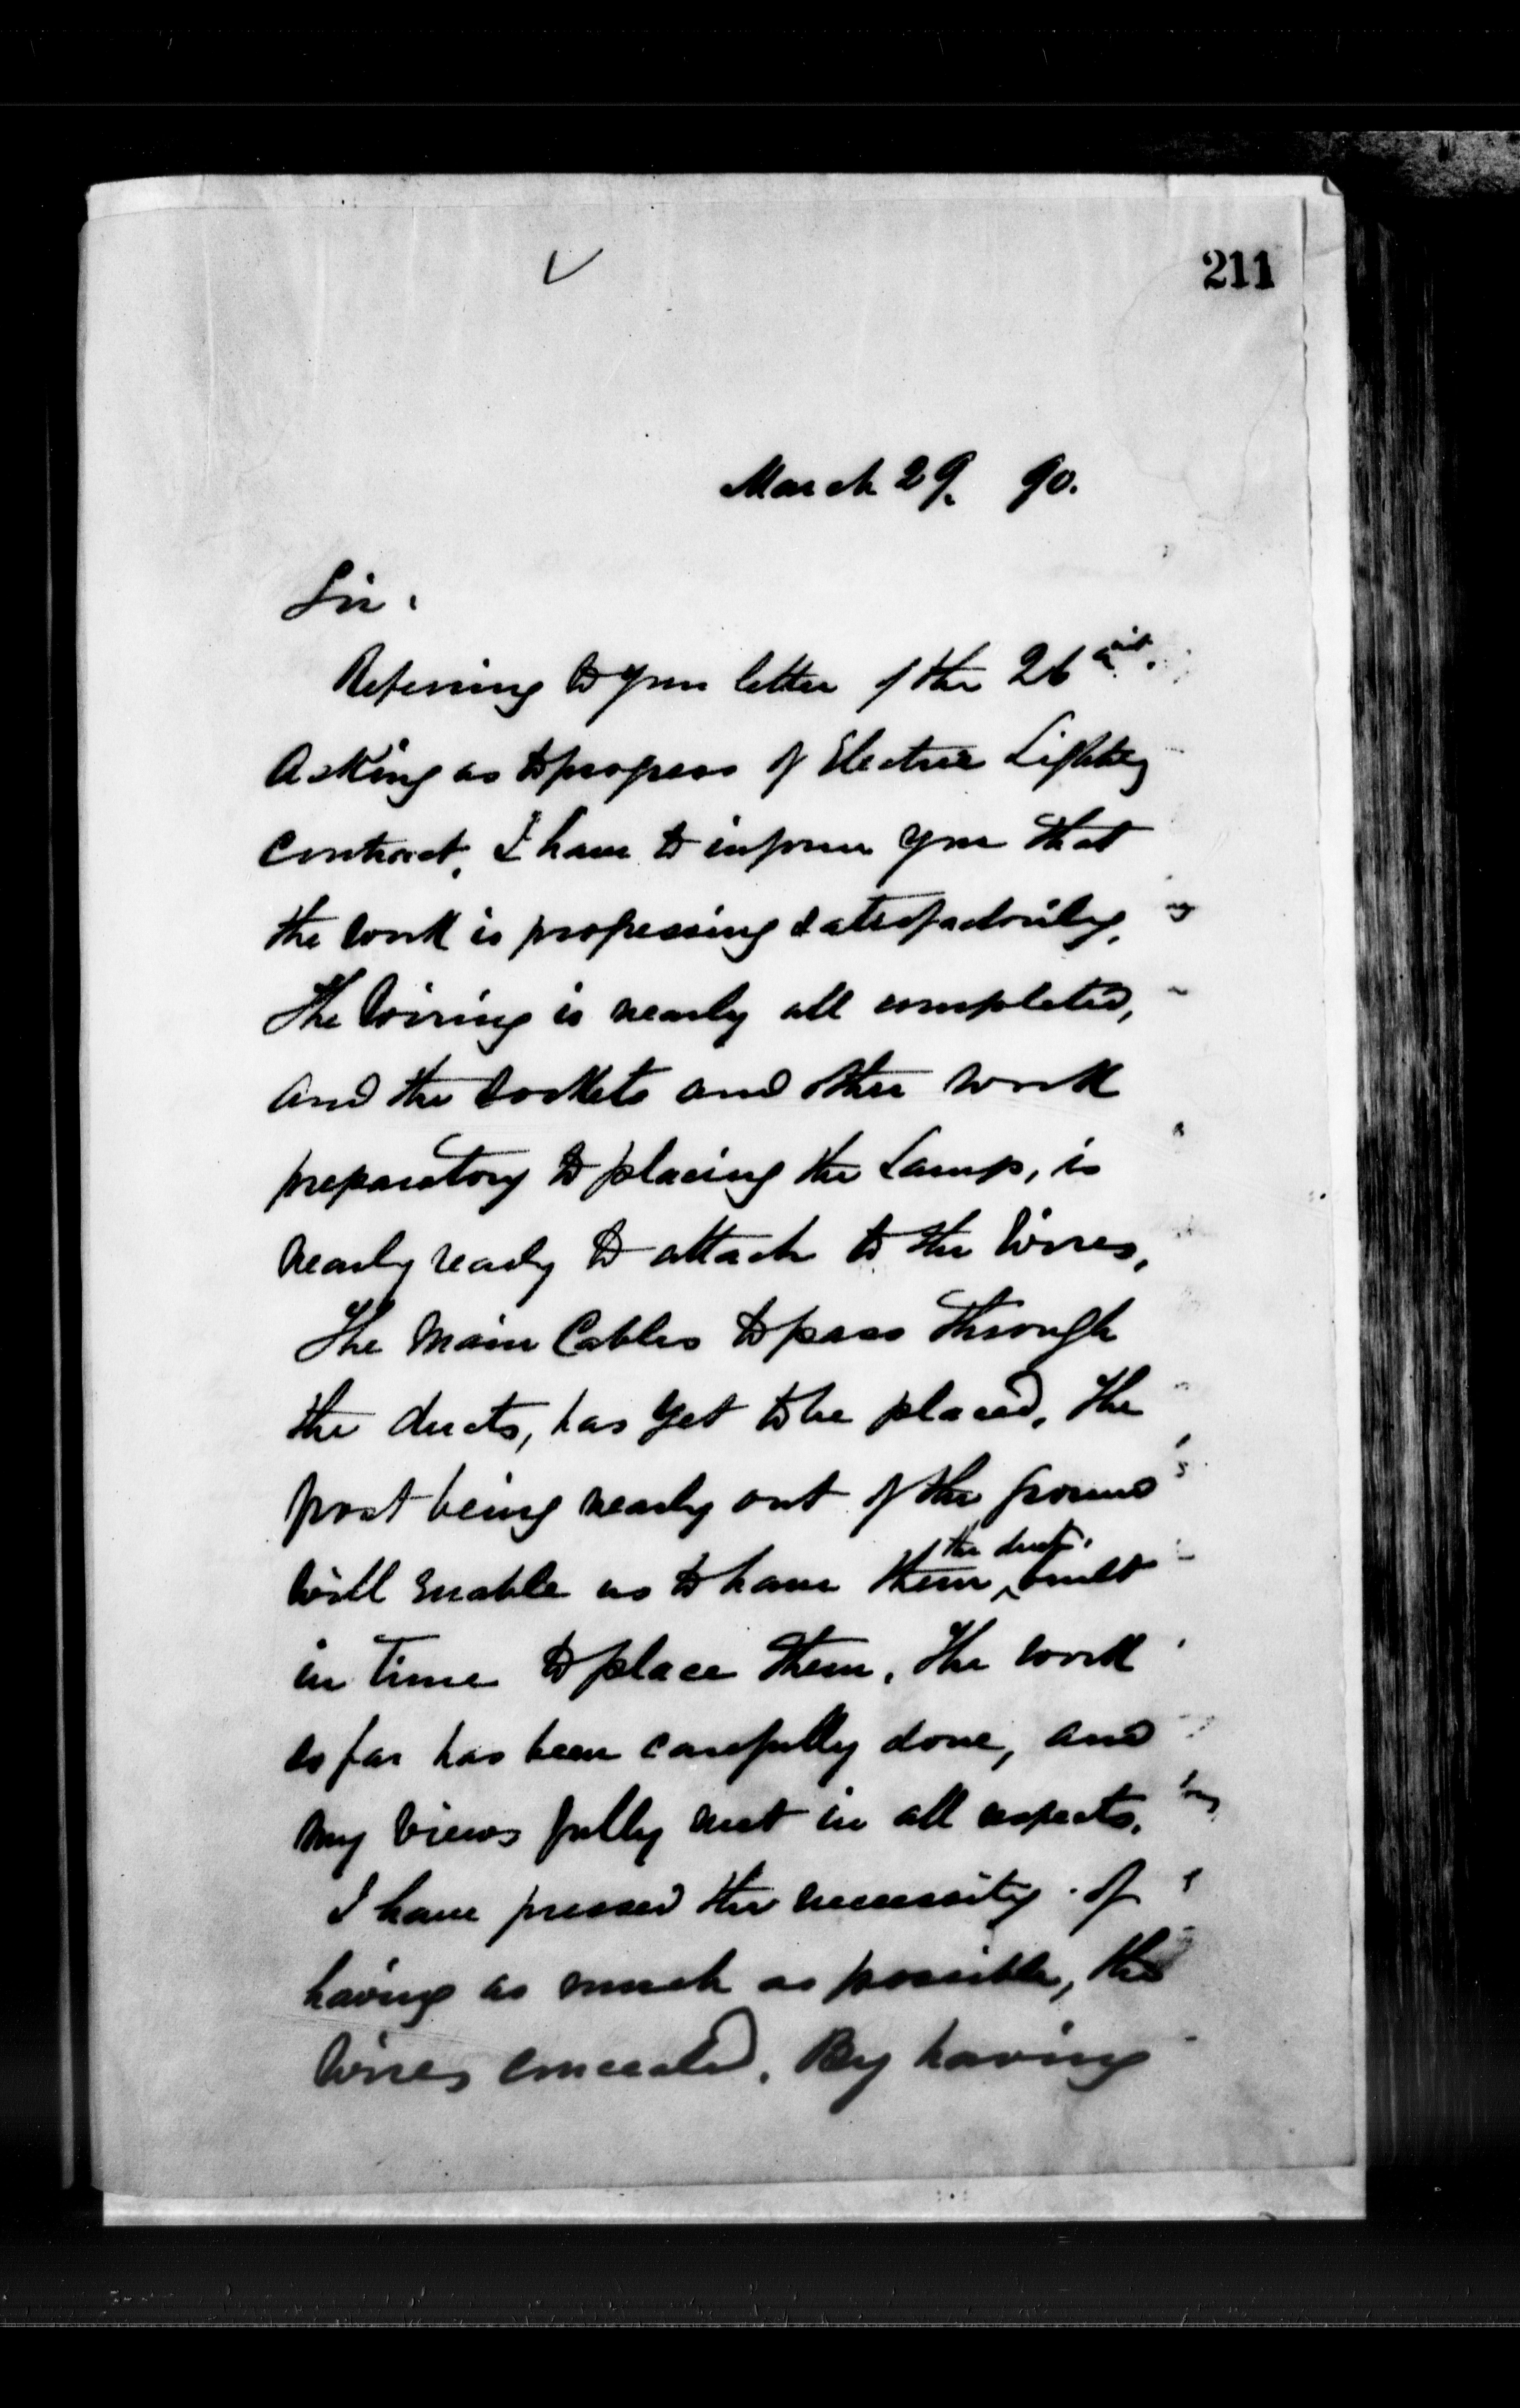 211
March 29. 90.
Sir.
Referring to your letter of the 26 inst.
Asking as to progress of Electric Lighting
Contract, I have to inform you that
the work is progressing satisfactorily.
The Wiring is nearly all completed,
and the Sockets and other work
preparatory to placing the Lamps, is
nearly ready to attach to the Wires.
The Main Cables to pass through
the ducts, has yet to be placed. The
frost being nearly out of the ground
will enable us to have them the ducts built
in time to place them. The work
so far has been carefully done, and
my views fully met in all respects.
I have pressed the necessity of
having as much as possible, the
wires concealed. By having